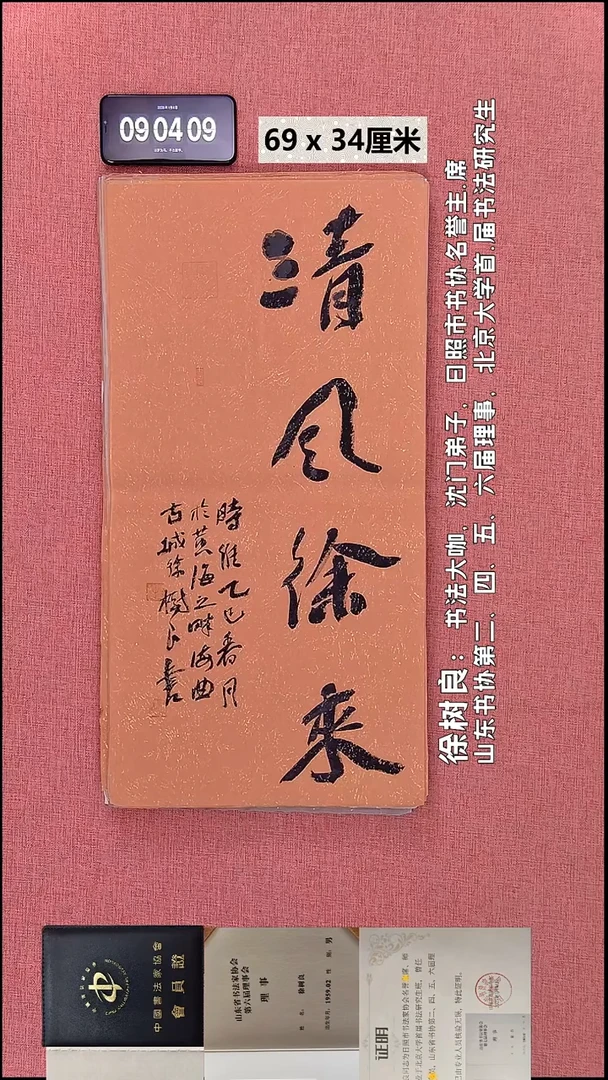 09 04 09
69 x 34厘米
清风徐来
時維乙巳春月
於黄海之畔海曲
古城徐樹良書
徐树良：书法大咖，沈门弟子，日照市书协名誉主席
山东书协第二、四、五、六届理事，北京大学首届书法研究生
中國書法家協會
會員證
山东省书法家协会
第六届理事会
理事
姓名：徐树良
性别：男
出生年月：1959.02
证明